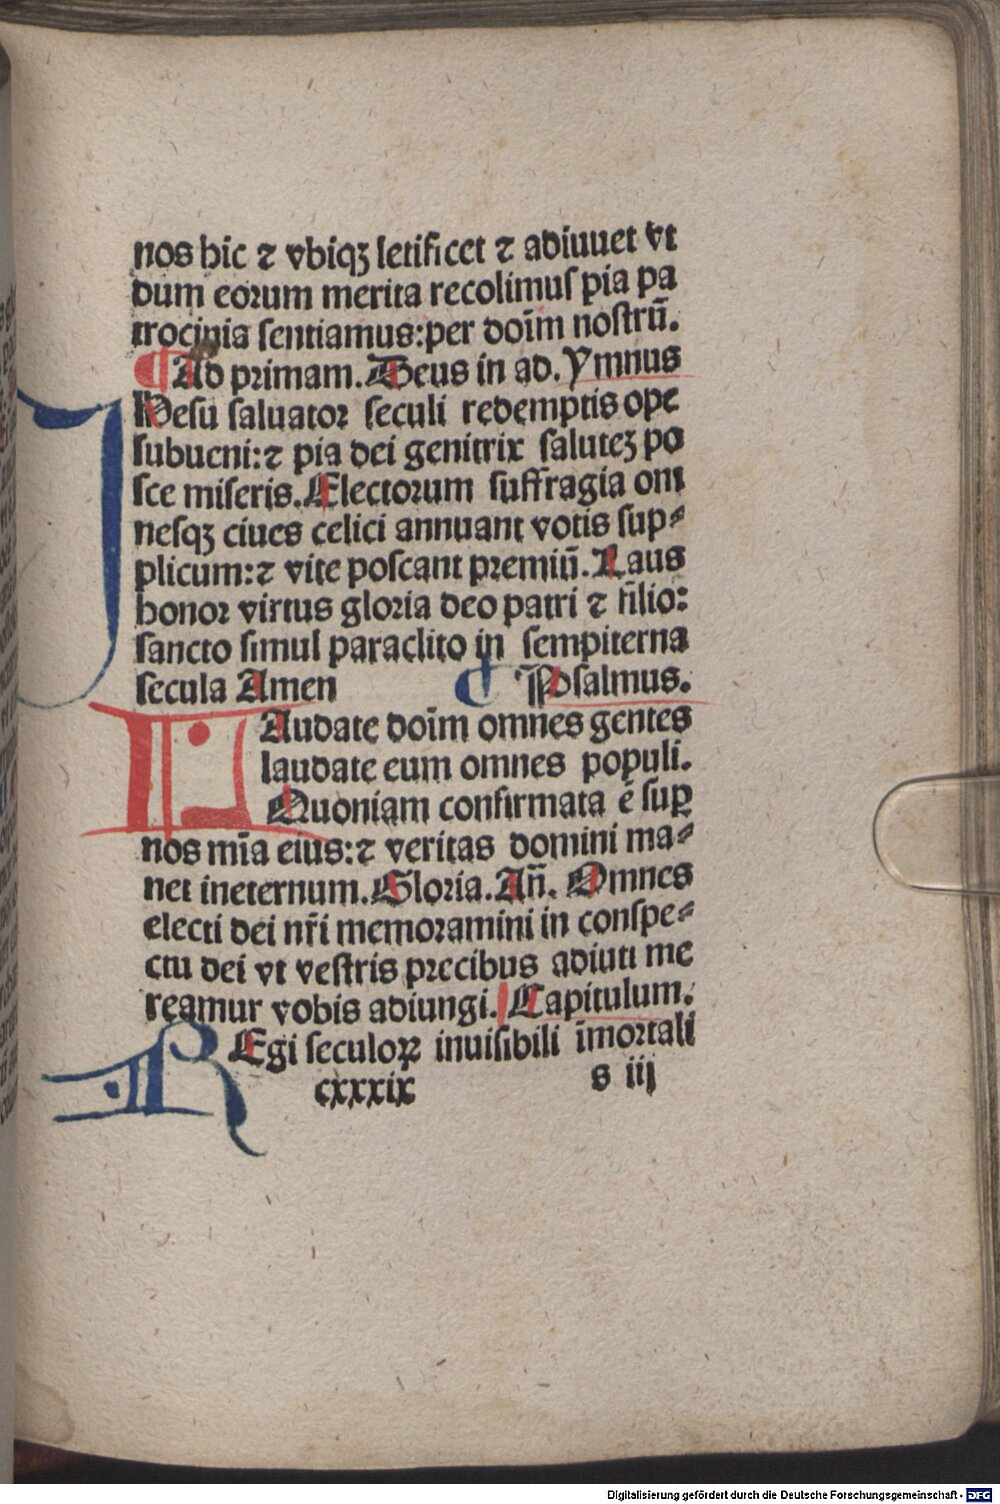 nos hic ⁊ vbiqꝫ letificet ⁊ adiuuet vt
dum eoꝛum merita recolimuſ pia pa
trocinia ſentiamus:per doīm noſtrū.
¶Ad pꝛimam.Deus in ad.Ymnus
IHeſu ſaluatoꝛ ſeculi redemptis ope
ſubueni:⁊ pia dei genitrix ſaluteꝫ po
ſce miſeris.Electoꝛum ſuffragia om
neſqꝫ ciues celici annuant votis ſup⸗
plicum:⁊ vite poſcant pꝛemiū.Laus
honoꝛ virtus gloꝛia deo patri ⁊ filio:
ſancto ſimul paraclito in ſempiterna
ſecula Amen ¶ Pſalmus.
LAudate doīm omnes gentes
laudate eum omnes populi.
Quoniam confirmata ē ſuꝑ
nos mīa eius:⁊ veritas domini ma⸗
net ineternum.Gloꝛia.Añ. Omnes
electi dei nr̄i memoꝛamini in conſpe⸗
ctu dei vt veſtris pꝛecibus adiuti me
reamur vobis adiungi.Capitulum.
REgi ſeculoꝝ inuiſibili īmoꝛtali
cxxxix s iij
Digitalisierung gefördert durch die Deutsche Forschungsgemeinschaft - DFG